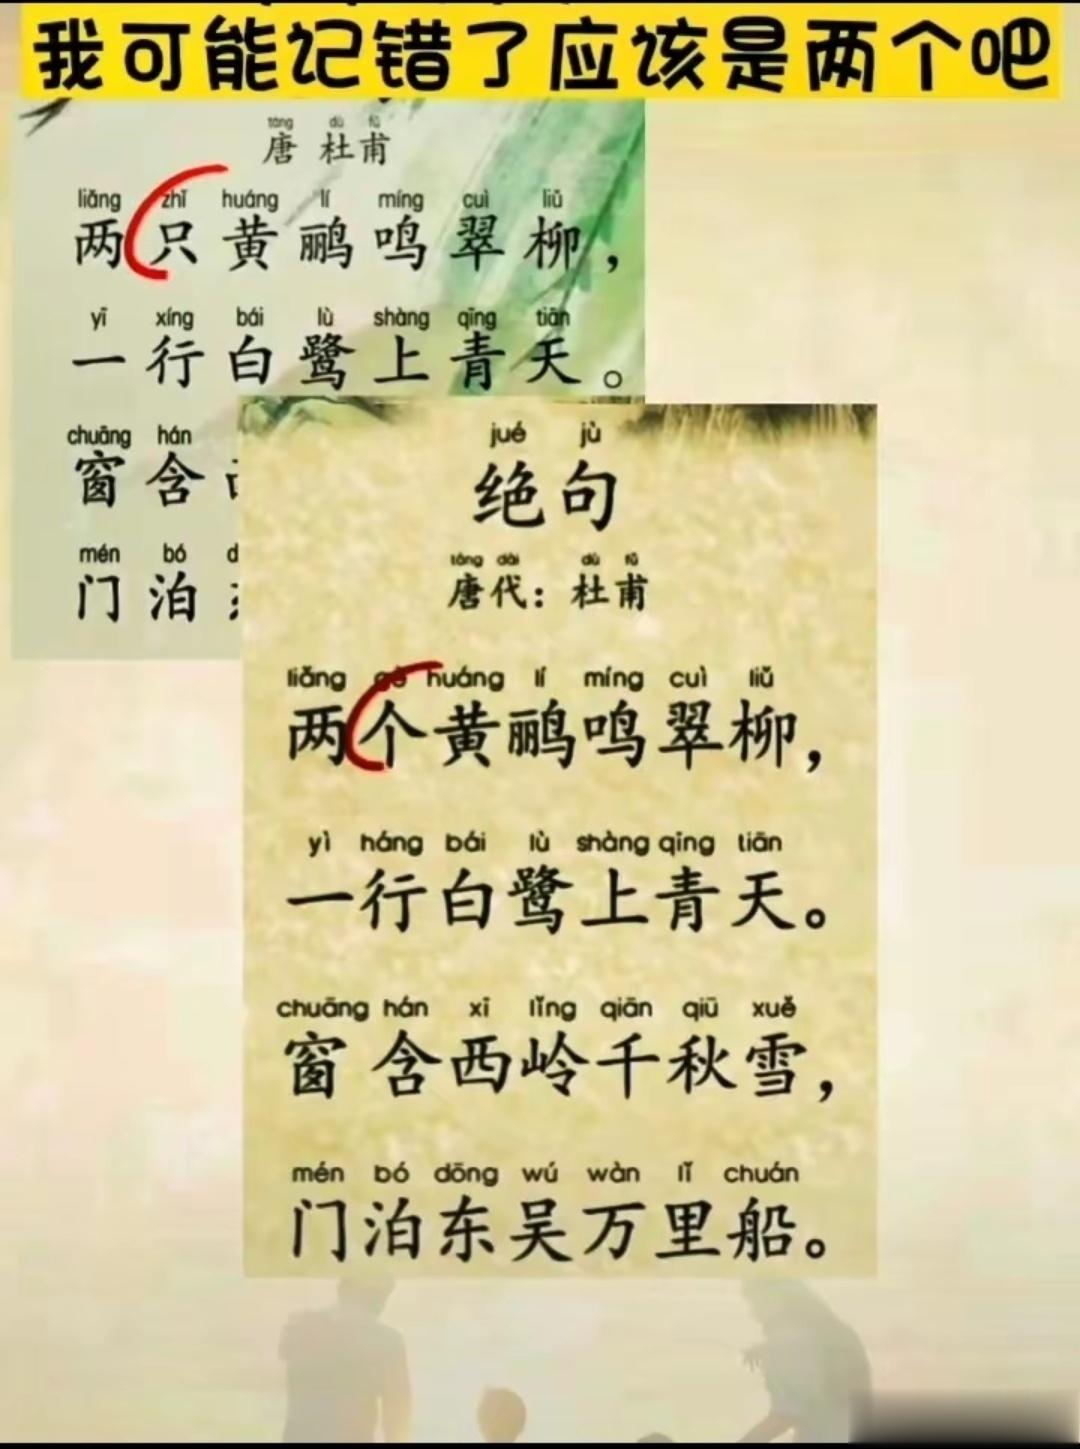 我可能记错了应该是两个吧
táng dù fǔ
唐 杜甫
liǎng zhǐ huáng lí míng cuì liǔ
两只黄鹂鸣翠柳，
yī xíng bái lù shàng qīng tiān
一行白鹭上青天。
chuāng hán
窗含
mén bó
门泊
jué jù
绝句
táng dài dù fǔ
唐代：杜甫
liǎng gè huáng lí míng cuì liǔ
两个黄鹂鸣翠柳，
yì háng bái lù shàng qīng tiān
一行白鹭上青天。
chuāng hán xī lǐng qiān qiū xuě
窗含西岭千秋雪，
mén bó dōng wú wàn lǐ chuán
门泊东吴万里船。